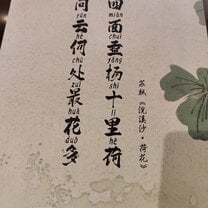 四面垂杨十里荷
miàn chuí yáng shí lǐ hé
问云何处最花多
yún hé chù zuì huā duō
苏轼《浣溪沙·荷花》